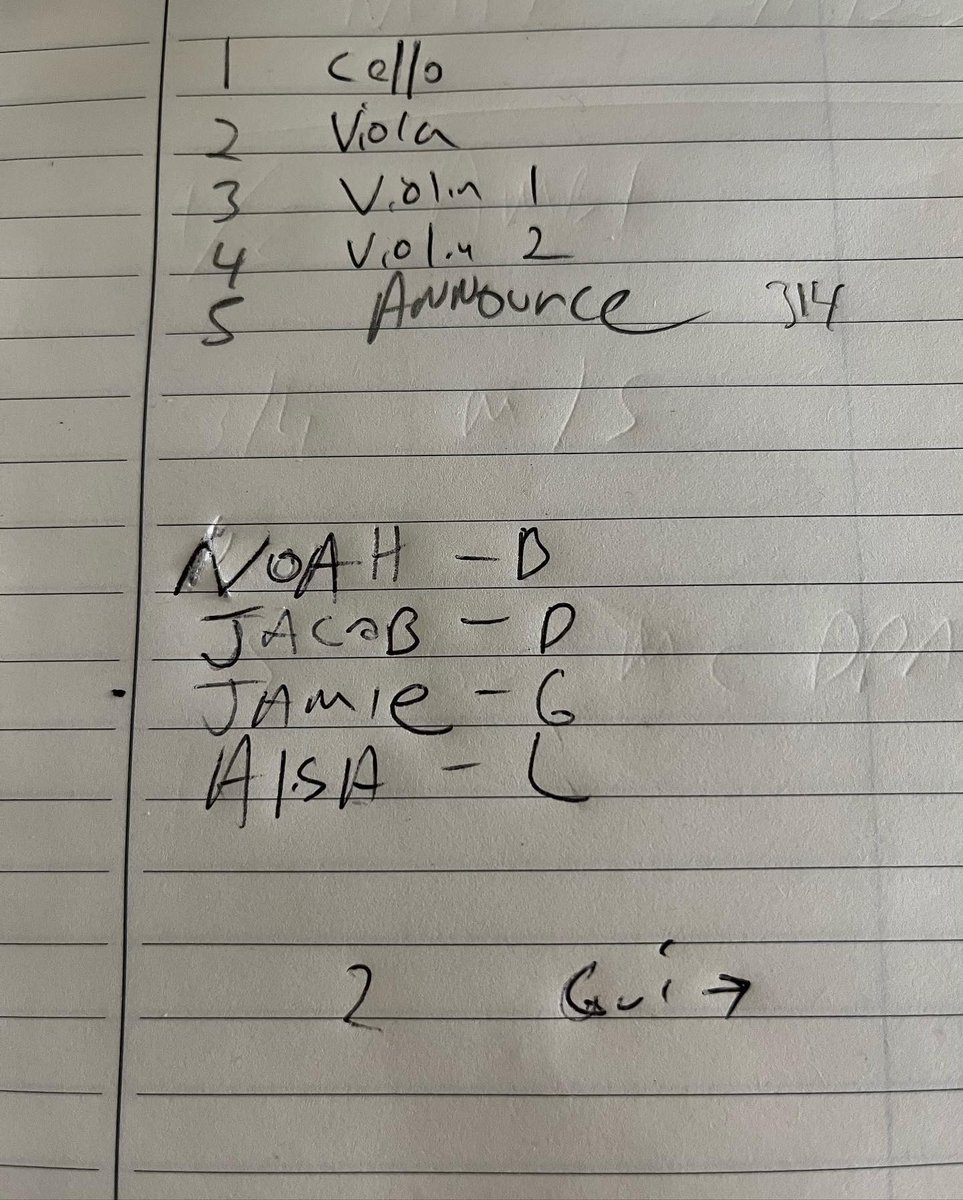 1 Cello
2 Viola
3 Violin 1
4 Violin 2
5 Announce 314
NOAH - D
JACOB - D
JAMIE - G
AISA - L
2 Gui →